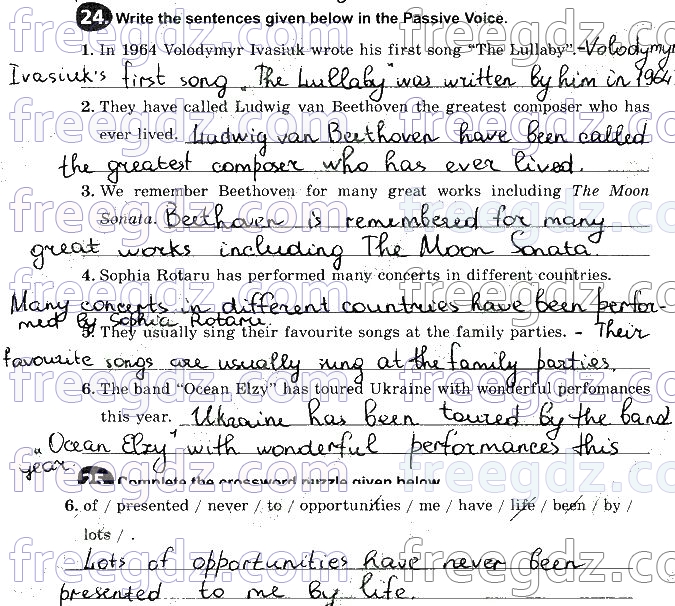 24. Write the sentences given below in the Passive Voice.
1. In 1964 Volodymyr Ivasiuk wrote his first song “The Lullaby”. – Volodymyr
Ivasiuk's first song „The Lullaby” was written by him in 1964
2. They have called Ludwig van Beethoven the greatest composer who has
ever lived. Ludwig van Beethoven have been called
the greatest composer who has ever lived.
3. We remember Beethoven for many great works including The Moon
Sonata. Beethoven is remembered for many
great works including The Moon Sonata.
4. Sophia Rotaru has performed many concerts in different countries.
Many concerts in different countries have been perfor-
med by Sophia Rotaru.
5. They usually sing their favourite songs at the family parties. – Their
favourite songs are usually sung at the family parties.
6. The band “Ocean Elzy” has toured Ukraine with wonderful perfomances
this year. Ukraine has been toured by the band
„Ocean Elzy” with wonderful performances this
year
25. Complete the crossword puzzle given below
6. of / presented / never / to / opportunities / me / have / life / been / by /
lots / .
Lots of opportunities have never been
presented to me by life.
freegdz.com